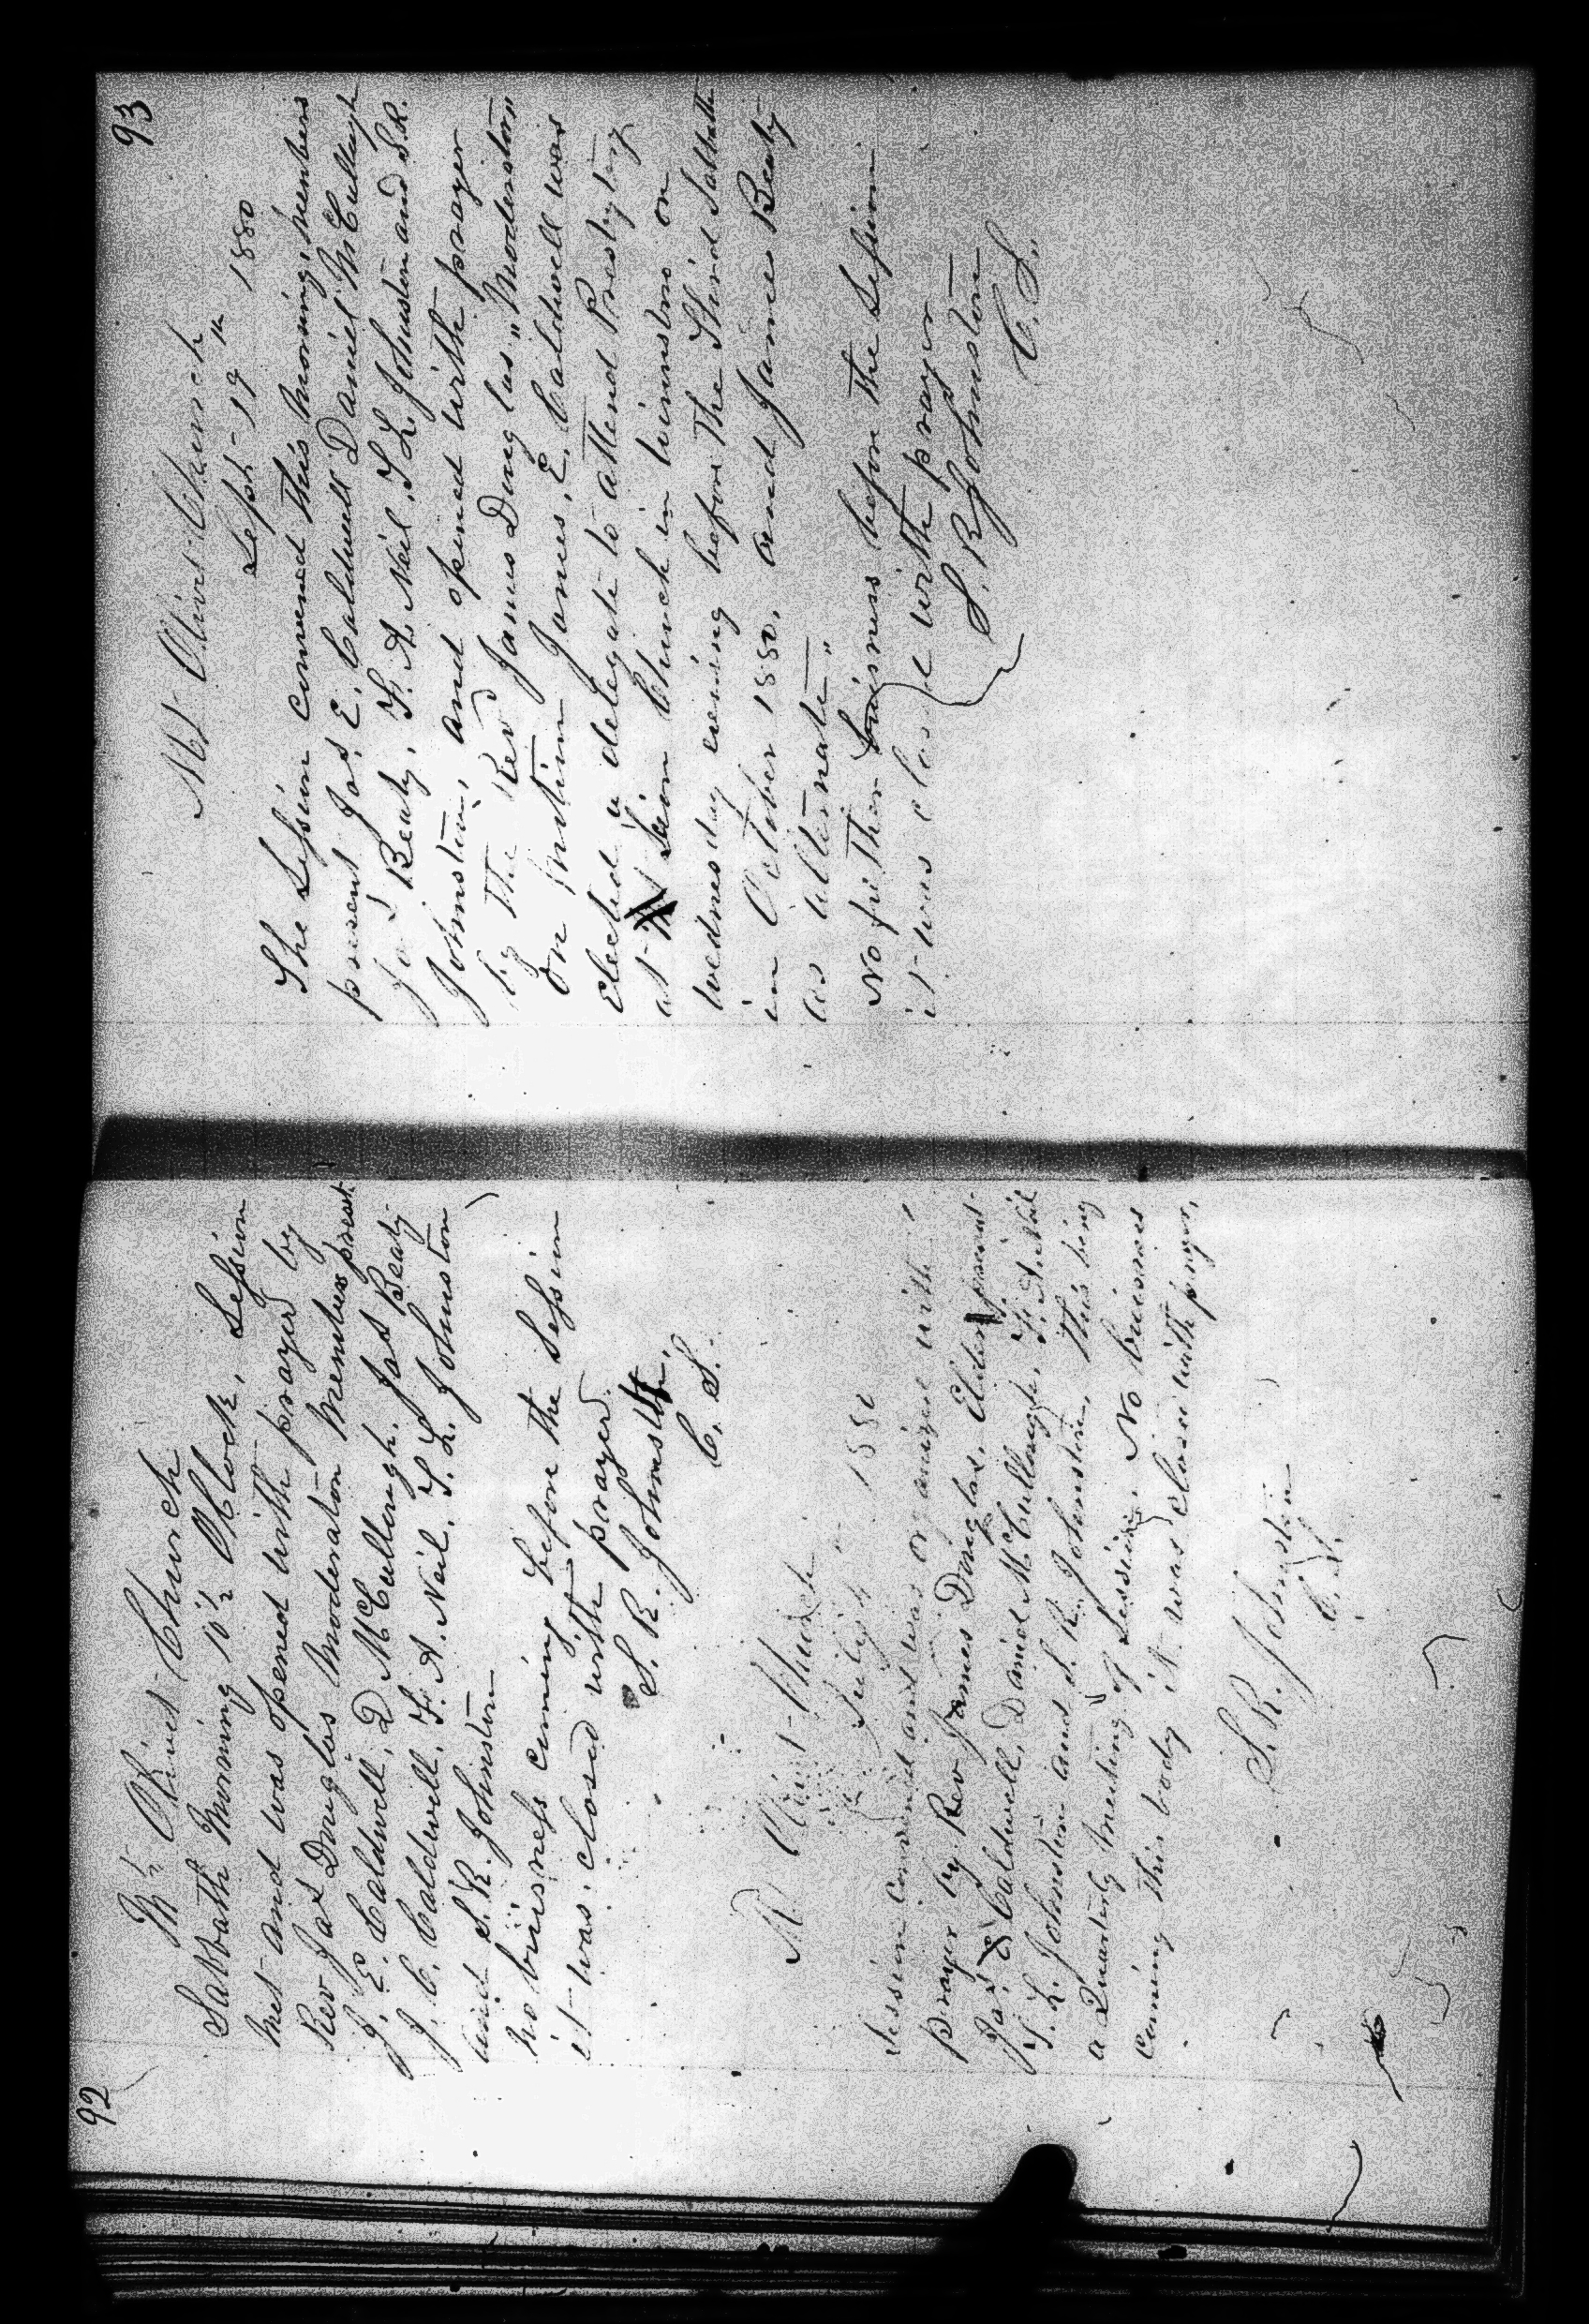 92
Mt Olivet Church
Sabbath Morning 10½ Oclock, Session
Met and was opened with prayer by
Rev Jas Douglas Moderator Members prest
J. E. Caldwell, D McCullough, Jas Beaty
J. C. Caldwell, F. A. Neil, T. L. Johnston
and S. R. Johnston
No buisness coming before the Session
it was closed with prayer.
S. R. Johnston,
C. S.
Mt Olivet Church
July 4 " 1880
Session convened and was organized with
prayer by Rev James Douglas, Elders present
Jas E Caldwell, Daniel McCullough, F. A. Neil
T. L. Johnston and S. R. Johnston, This being
a Quarterly Meeting of Session, No buisness
Coming this body it was closed with prayer,
S. R. Johnston
C. S.
93
Mt Olivet Church
Sept 19 " 1880
The Session convened this morning, members
present Jas. E. Caldwell Daniel McCullough
Jas Beaty, F. A. Neil, T. L. Johnston and S. R.
Johnston, and opened with prayer
by the Rev James Douglas „Moderator"
On Motion James, E. Caldwell was
Elected a delegate to attend Presbytry
at Sion Church in Winnsboro on
Wednesday evening before the Third Sabbath
in October 1880, and James Beaty
as alternate"
No further buisness before the Session
it was closed with prayer
S. R. Johnston
C. S.